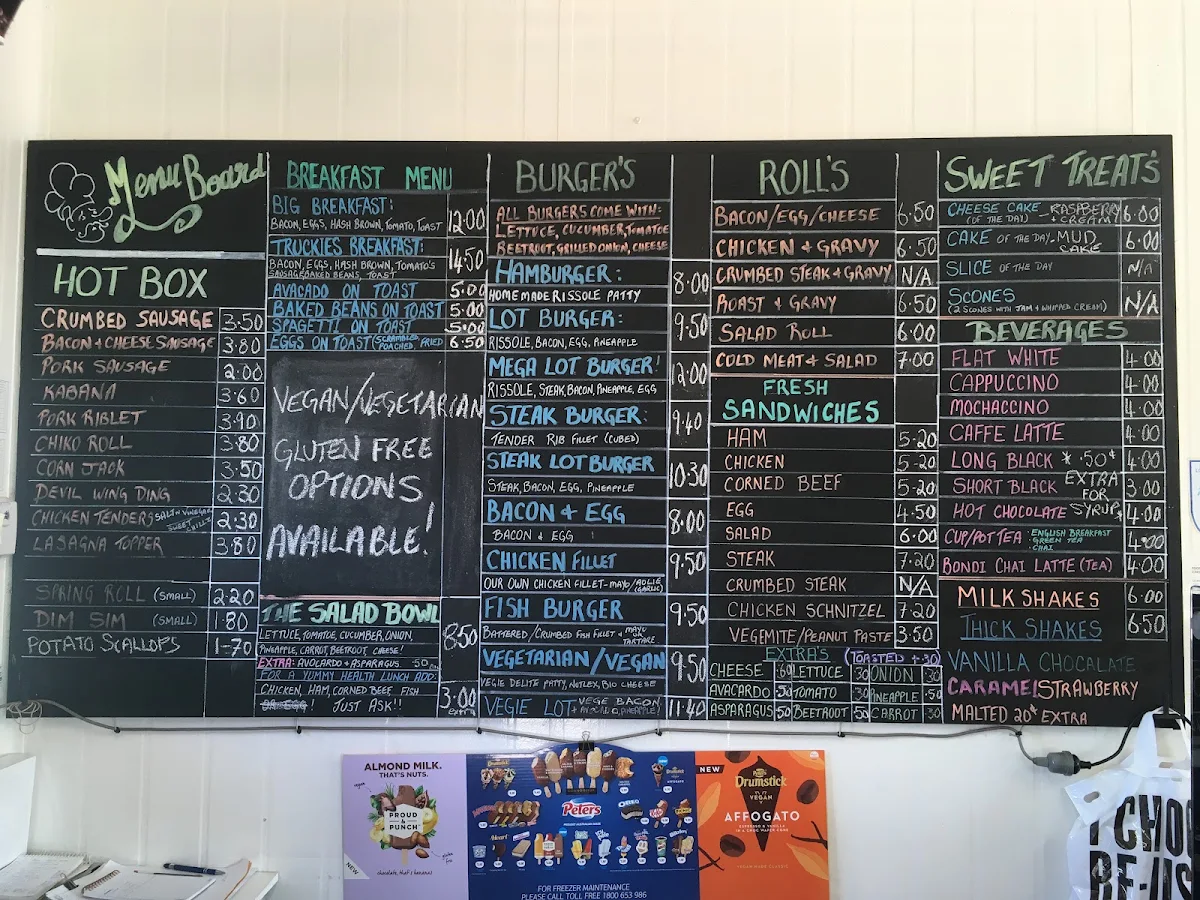 Menu Board
HOT BOX
CRUMBED SAUSAGE 3.50
BACON & CHEESE SAUSAGE 3.80
PORK SAUSAGE 2.00
KABANA 3.60
PORK RIBLET 3.90
CHIKO ROLL 3.80
CORN JACK 3.50
DEVIL WING DING 2.30
CHICKEN TENDERS SALT N VINEGAR SWEET CHILLI 2.30
LASAGNA TOPPER 3.80
SPRING ROLL (SMALL) 2.20
DIM SIM (SMALL) 1.80
POTATO SCALLOPS 1-70
BREAKFAST MENU
BIG BREAKFAST:
BACON, EGGS, HASH BROWN, TOMATO, TOAST 12.00
TRUCKIES BREAKFAST:
BACON, EGGS, HASH BROWN, TOMATO'S 14.50
SAUSAGE BAKED BEANS, TOAST
AVACADO ON TOAST 5.00
BAKED BEANS ON TOAST 5.00
SPAGETTI ON TOAST 5.00
EGGS ON TOAST (SCRAMBLED, POACHED, FRIED 6.50
VEGAN/VEGETARIAN
GLUTEN FREE
OPTIONS
AVAILABLE!
THE SALAD BOWL
LETTUCE, TOMATOE, CUCUMBER, ONION, 8.50
PINEAPPLE, CARROT, BEETROOT, CHEESE!
EXTRA: AVOLARDO & ASPARAGUS .50
FOR A YUMMY HEALTH LUNCH ADD:
CHICKEN, HAM, CORNED BEEF, FISH 3.00
! JUST ASK!! extra
BURGER'S
ALL BURGERS COME WITH:
LETTUCE, CUCUMBER, TOMATOE
BEETROOT, GRILLED ONION, CHEESE
HAMBURGER: 8.00
HOMEMADE RISSOLE PATTY
LOT BURGER: 9.50
RISSOLE, BACON, EGG, PINEAPPLE
MEGA LOT BURGER! 12.00
RISSOLE, STEAK, BACON, PINEAPPLE, EGG
STEAK BURGER: 9.40
TENDER RIB FILLET (CUBED)
STEAK LOT BURGER 10.30
STEAK, BACON, EGG, PINEAPPLE
BACON & EGG 8.00
BACON & EGG !
CHICKEN FILLET 9.50
OUR OWN CHICKEN FILLET-MAYO/AOLIE (GARLIC)
FISH BURGER 9.50
BATTERED/CRUMBED FISH FILLET & MAYO OR TARTARE
VEGETARIAN/VEGAN 9.50
VEGIE DELITE PATTY, NOTLEX, BIO CHEESE
VEGIE LOT - VEGE BACON 11.40
+ AVOCADO, PINEAPPLE)
ROLL'S
BACON/EGG/CHEESE 6.50
CHICKEN & GRAVY 6.50
CRUMBED STEAK & GRAVY N/A
ROAST & GRAVY 6.50
SALAD ROLL 6.00
COLD MEAT & SALAD 7.00
FRESH
SANDWICHES
HAM 5-20
CHICKEN 5-20
CORNED BEEF 5-20
EGG 4.50
SALAD 6.00
STEAK 7.20
CRUMBED STEAK N/A
CHICKEN SCHNITZEL 7.20
VEGEMITE/PEANUT PASTE 3.50
EXTRA'S (TOASTED +.30)
CHEESE .60 LETTUCE .30 ONION .30
AVACARDO .50 TOMATO .30 PINEAPPLE .50
ASPARAGUS .50 BEETROOT .50 CARROT .30
SWEET TREAT'S
CHEESE CAKE (OF THE DAY) - RASPBERRY & CREAM 6.00
CAKE OF THE DAY - MUD CAKE 6.00
SLICE OF THE DAY N/A
SCONES N/A
(2 SCONES WITH JAM & WHIPPED CREAM)
BEVERAGES
FLAT WHITE 4.00
CAPPUCCINO 4.00
MOCHACCINO 4.00
CAFFE LATTE 4.00
LONG BLACK 4.00
SHORT BLACK 3.00
* .50¢ EXTRA FOR SYRUP
HOT CHOCOLATE 4.00
CUP/POT TEA · ENGLISH BREAKFAST · GREEN TEA · CHAI 4.00
BONDI CHAI LATTE (TEA) 4.00
MILK SHAKES 6.00
THICK SHAKES 6.50
VANILLA CHOCOLATE
CARAMEL STRAWBERRY
MALTED 20¢ EXTRA
ALMOND MILK.
THAT'S NUTS.
vegan
PROUD & PUNCH
gluten free
NEW
chocolate, that's bananas
Drumstick
Peters
OREO
FOR FREEZER MAINTENANCE
PLEASE CALL TOLL FREE 1800 653 986
NEW
Drumstick
VEGAN
AFFOGATO
I CHOO
RE-US